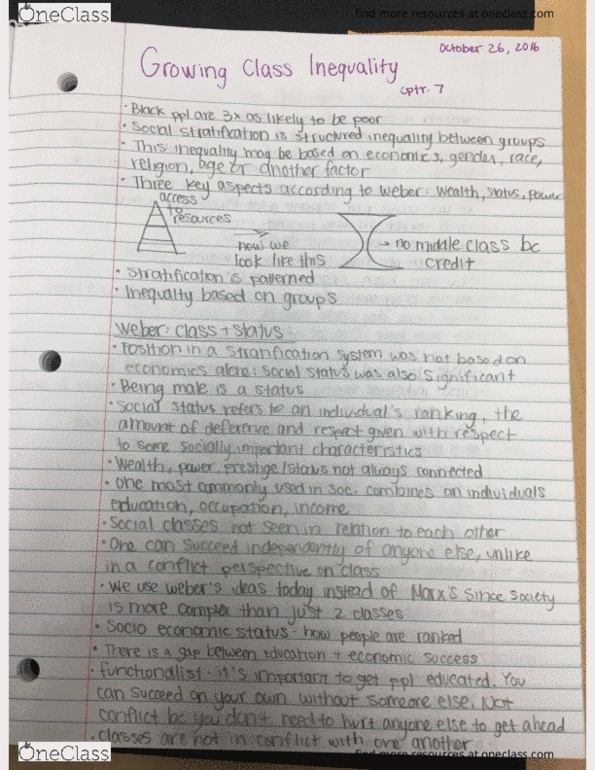 OneClass
find more resources at oneclass.com
October 26, 2016
Growing Class Inequality
cptr. 7
• Black ppl are 3x as likely to be poor
• Social stratification is structured inequality between groups
• This inequality may be based on economics, gender, race,
religion, age or another factor
• Three key aspects according to Weber: wealth, status, power
access
to
resources
now we
look like this
→ no middle class bc
credit
• Stratification is patterned
• Inequality based on groups
Weber: class + status:
• Position in a stratification system was not based on
economics alone: social status was also significant
• Being male is a status
• Social status refers to an individual's ranking, the
amount of deference and respect given with respect
to some socially important characteristics
• Wealth, power, prestige/status not always connected
• One most commonly used in soc. combines an individuals
education, occupation, income
• Social classes not seen in relation to each other
• One can succeed independently of anyone else, unlike
in a conflict perspective on class
• We use Weber's ideas today instead of Marx's since society
is more complex than just 2 classes
• Socio economic status - how people are ranked
• There is a gap between education + economic success
• functionalist - it's important to get ppl educated. You
can succeed on your own without someone else. Not
conflict bc you don't need to hurt anyone else to get ahead
• classes are not in conflict with one another
OneClass
find more resources at oneclass.com